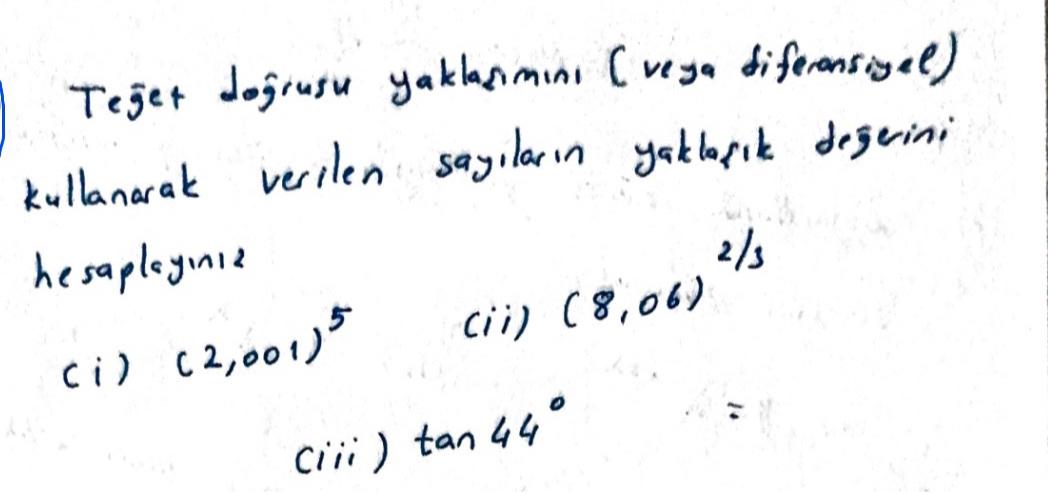 Teğet doğrusu yaklaşımını (veya diferansiyel)
kullanarak verilen sayıların yaklaşık değerini
hesaplayınız
(i) (2,001)^5 (ii) (8,06)^2/3
(iii) tan 44° =